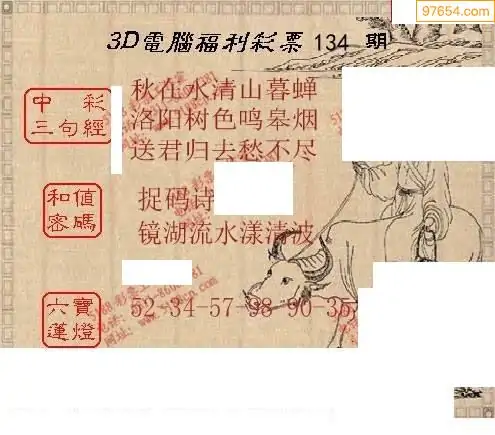 97654.com
3D電腦福利彩票 134 期
中彩
三句經
秋在水清山暮蝉
洛阳树色鸣皋烟
送君归去愁不尽
和值
密碼
捉码诗
镜湖流水漾清波
六寶
蓮燈
52-34-57-98-90-35